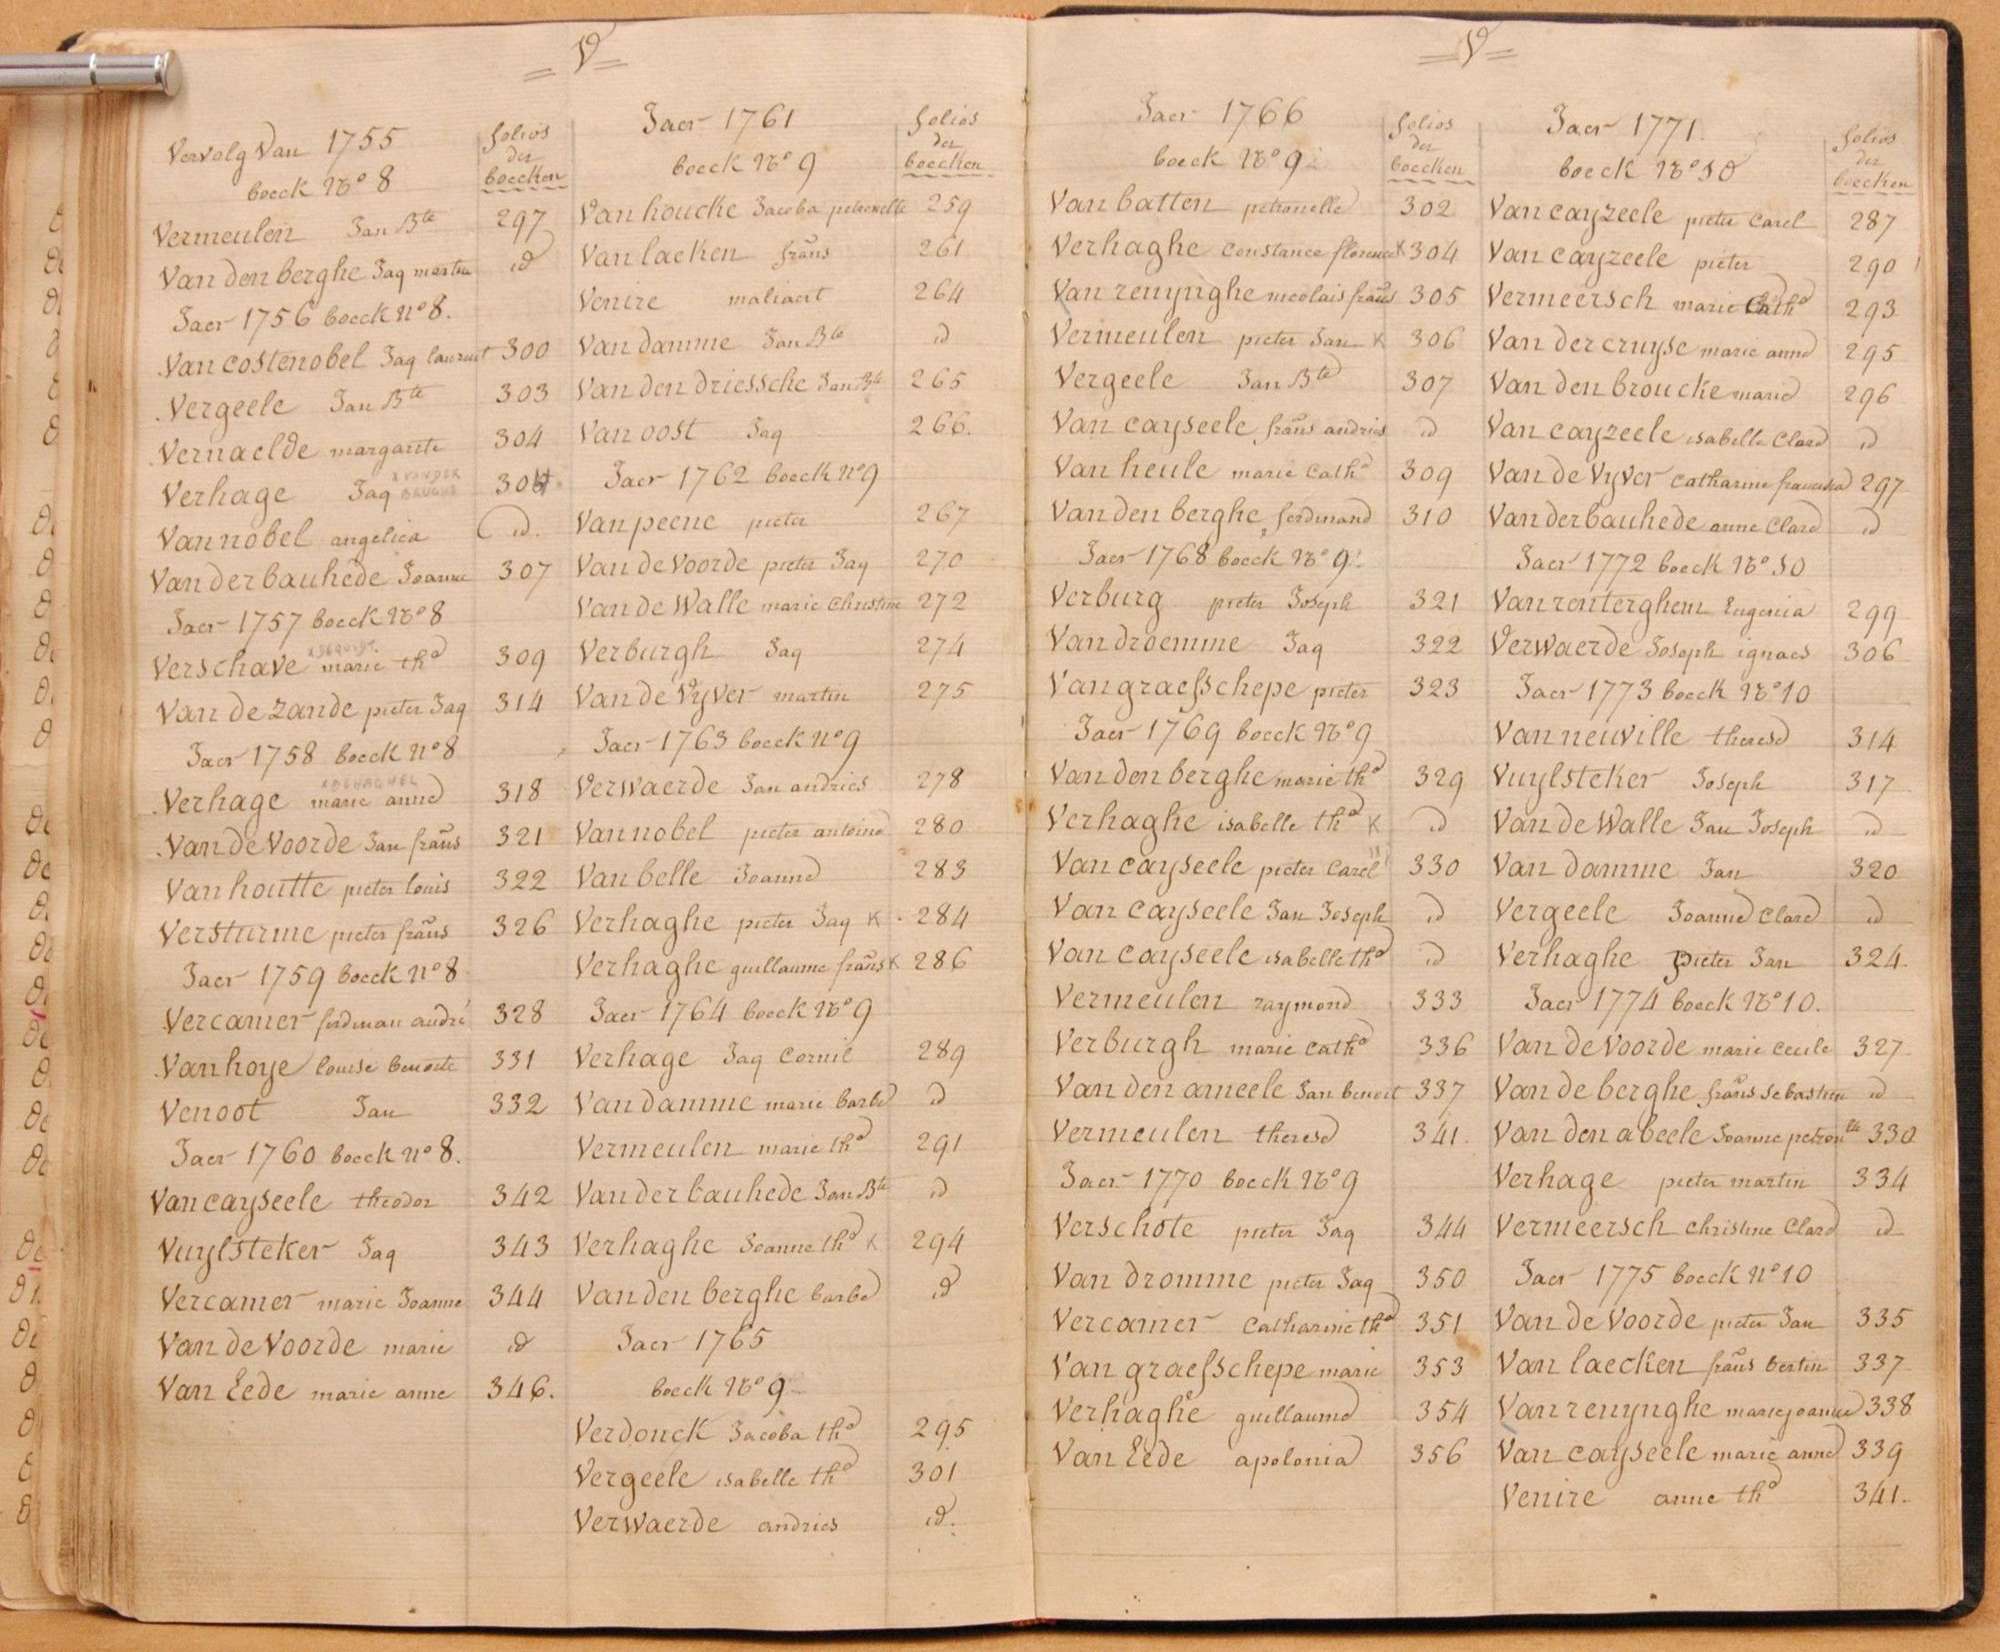 V
Vervolg Van 1755
boeck No 8
folios
der
boecken
Vermeulen Jan Bte 297
Van den berghe Jaq martin id
Jaer 1756 boeck no 8.
Van costenobel Jaq laurent 300
Vergeele Jan Bte 303
Vernaelde margarite 304
Verhage Jaq 304
Van nobel angelica id.
Van der bauhede Joanne 307
Jaer 1757 boeck No 8
Verschave marie the 309
Van de zande pieter Jaq 314
Jaer 1758 boeck no 8
Verhage marie anne 318
Van de Voorde Jan frans 321
Van houtte pieter louis 322
Versturme pieter frans 326
Jaer 1759 boeck no 8
Vercamer ferdinan andré 328
Van hoye louise benoite 331
Venoot Jan 332
Jaer 1760 boeck no 8.
Van cayseele theodor 342
Vuylsteker Jaq 343
Vercamer marie Joanne 344
Van de Voorde marie id
Van Eede marie anne 346.
Jaer 1761
boeck No 9
folios
der
boecken
Van houcke Jacoba petronelle 259
Van lacken frans 261
Venire maliaert 264
Van damme Jan Bte id
Van den driessche Jan Bte 265
Van oost Jaq 266.
Jaer 1762 boeck no 9
Van peene pieter 267
Van de Voorde pieter Jaq 270
Van de Walle marie Christine 272
Verburgh Jaq 274
Van de Vyver martin 275
Jaer 1763 boeck no 9
Verwaerde Jan andries 278
Van nobel pieter antoine 280
Van belle Joanne 283
Verhaghe pieter Jaq K 284
Verhaghe guillaume frans K 286
Jaer 1764 boeck No 9
Verhage Jaq Cornil 289
Van damme marie barbe id
Vermeulen marie the 291
Van der bauhede Jan Bte id
Verhaghe Joanne the K 294
Van den berghe barbe id
Jaer 1765
boeck No 9
Verdonck Jacoba the 295
Vergeele isabelle the 301
Verwaerde andries id.
V
Jaer 1766
boeck No 9
folios
der
boecken
Van batten petronelle 302
Verhaghe constance florence K 304
Van renynghe nicolais frans 305
Vermeulen pieter Jan K 306
Vergeele Jan Bte 307
Van cayseele frans andries id
Van heule marie Cathe 309
Van den berghe ferdinand 310
Jaer 1768 boeck No 9
Verburg pieter Joseph 321
Van droemme Jaq 322
Van graefschepe pieter 323
Jaer 1769 boeck No 9
Van den berghe marie the 329
Verhaghe isabelle the K id
Van cayseele pieter Carel 330
Van cayseele Jan Joseph id
Van cayseele isabelle the id
Vermeulen raymond 333
Verburgh marie Cathe 336
Van den ameele Jan benoit 337
Vermeulen therese 341
Jaer 1770 boeck No 9
Verschote pieter Jaq 344
Van dromme pieter Jaq 350
Vercamer Catharine the 351
Van graefschepe marie 353
Verhaghe guillaume 354
Van Eede apolonia 356
Jaer 1771.
boeck No 10
folios
der
boecken
Van cayzeele pieter Carel 287
Van cayzeele pieter 290
Vermeersch marie Cathe 293
Van der cruyse marie anne 295
Van den broucke marie 296
Van cayzeele isabelle Clare id
Van de Vyver Catharine francisca 297
Van der bauhede anne Clare id
Jaer 1772 boeck No 10
Van renterghem Eugenia 299
Verwaerde Joseph ignaes 306
Jaer 1773 boeck No 10
Van neuville therese 314
Vuylsteker Joseph 317
Van de Walle Jan Joseph id
Van damme Jan 320
Vergeele Joanne Clare id
Verhaghe pieter Jan 324
Jaer 1774 boeck No 10.
Van de Voorde marie Cecile 327
Van de berghe frans Sebastien id
Van den abeele Joanne petronlle 330
Verhage pieter martin 334
Vermeersch Christine Clare id
Jaer 1775 boeck no 10
Van de Voorde pieter Jan 335
Van laecken frans bertin 337
Van renynghe marie joanne 338
Van cayseele marie anne 339
Venire anne the 341.